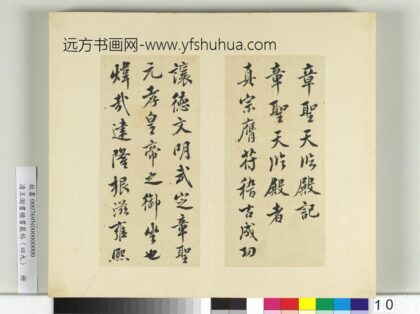 远方书画网-www.yfshuhua.com
章聖天臨殿記
章聖天臨殿者
真宗膺符稽古成功
讓德文明武定章聖
元孝皇帝之御坐也
煒哉建隆根滋雍熙
10